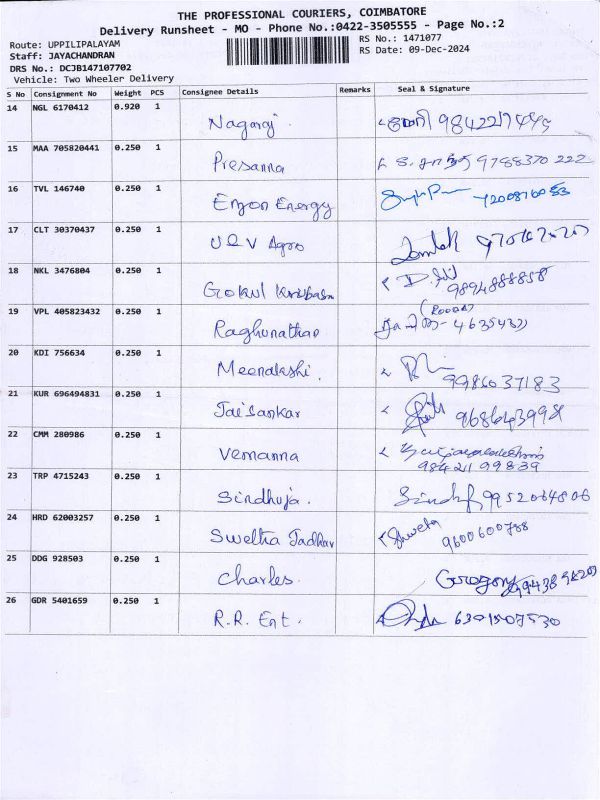 THE PROFESSIONAL COURIERS, COIMBATORE
Delivery Runsheet - MO - Phone No.:0422-3505555 - Page No.:2
Route: UPPILIPALAYAM RS No.: 1471077
Staff: JAYACHANDRAN RS Date: 09-Dec-2024
DRS No.: DCJB147107702
Vehicle: Two Wheeler Delivery
S No Consignment No Weight PCS Consignee Details Remarks Seal & Signature
14 NGL 6170412 0.920 1 Nagaraj
15 MAA 705820441 0.250 1 Presanna 9788370 222
16 TVL 146740 0.250 1 Enzon Energy
17 CLT 30370437 0.250 1 Agro
18 NKL 3476804 0.250 1 Gokul 9894888858
19 VPL 405823432 0.250 1 Raghunathan
20 KDI 756634 0.250 1 Meenakshi. 9986037183
21 KUR 696494831 0.250 1 Jaisankar
22 CMM 280986 0.250 1 Vemanna 98421 99839
23 TRP 4715243 0.250 1 Sindhuja. 9952064806
24 HRD 62003257 0.250 1 Sweltha Jadhav Shweta 9600600788
25 DDG 928503 0.250 1 Charles.
26 GDR 5401659 0.250 1 R.R. Ent. 6301507530